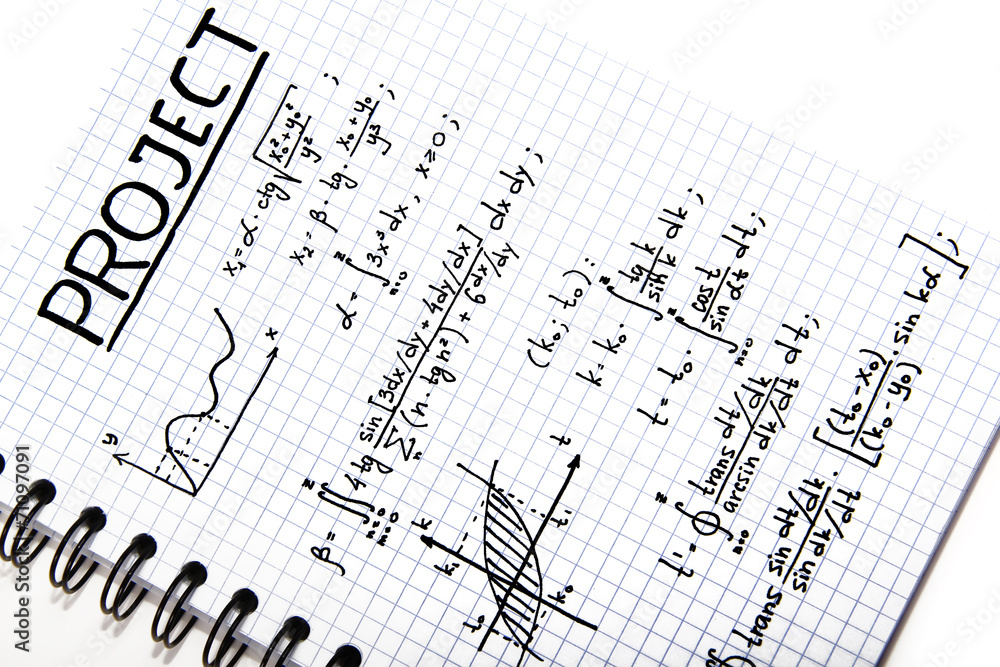 PROJECT
x₁ = α · ctg √((x₀² + y₀²)/y²) ;
x₂ = β · tg · (x₀ + y₀)/y³ ;
α = ∫_{n=0}^{z} 3x³dx , x ≥ 0 ;
β = ∬_{n=0 m=0}^{z} 4tg sin[3dx/dy + 4dy/dx]/(∑_n (n · tg n²) + 6^{dx/dy}) dx dy ;
y
x
(k₀ ; t₀) :
k = k₀ · ∫^{z} (tg k)/(sin k) dk ;
t = t₀ · ∫_{n=0}^{z} (cos t)/(sin dt) dt ;
k
k₁
t
t₁
t₀
k₀
t' = ∮_{n=0}^{z} (trans dt/dk)/(arcsin dk/dt) dt ;
trans (sin dt/dk)/(sin dk/dt) · [(t₀ - x₀)/(k₀ - y₀) · sin kα] ;
Adobe Stock | #71097091
Adobe Stock